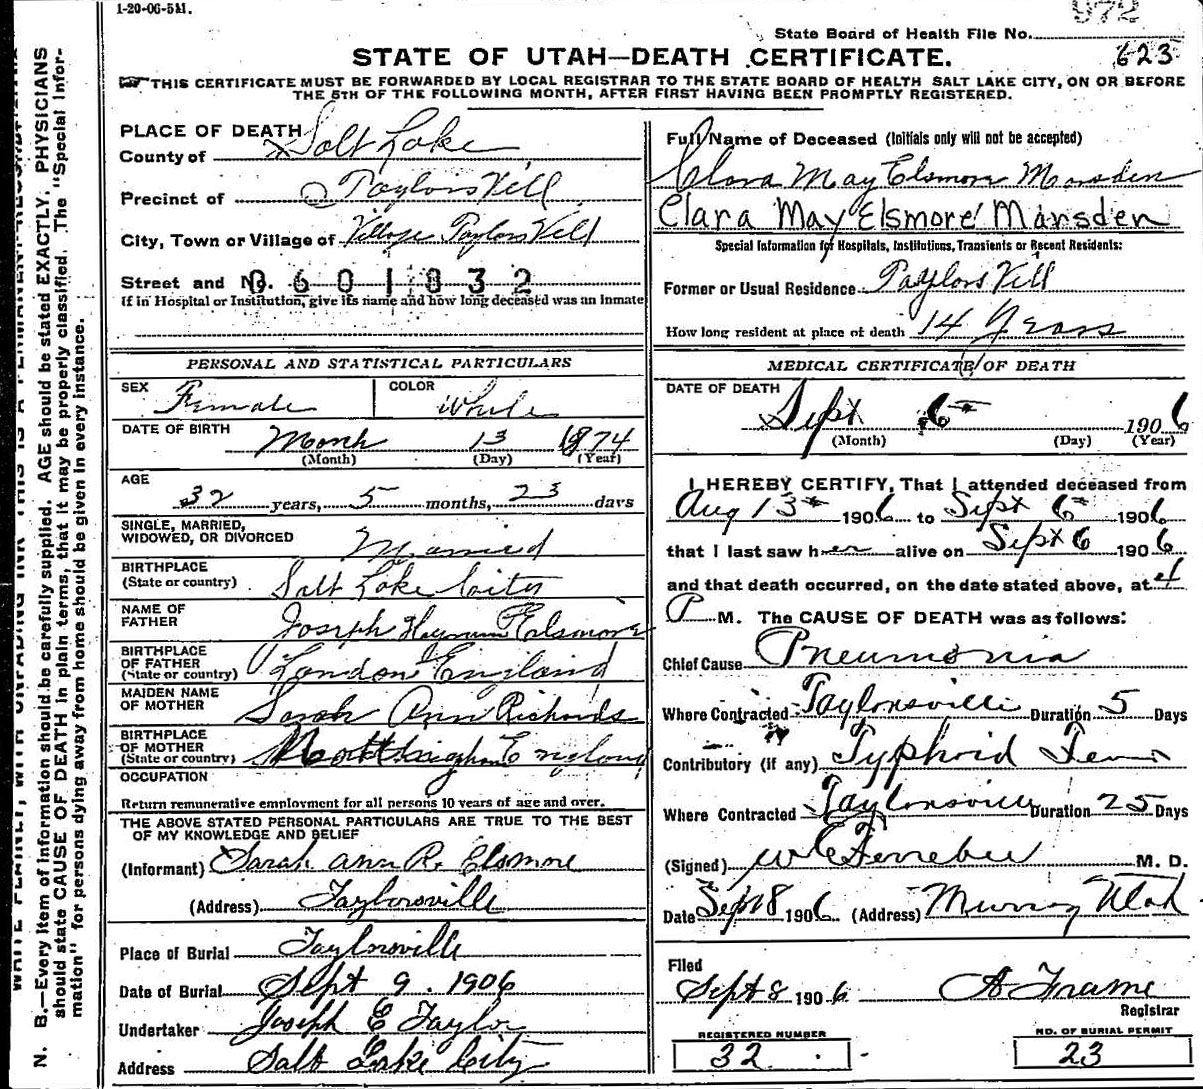 1-20-06-5M.
972
State Board of Health File No.
623
STATE OF UTAH—DEATH CERTIFICATE.
THIS CERTIFICATE MUST BE FORWARDED BY LOCAL REGISTRAR TO THE STATE BOARD OF HEALTH SALT LAKE CITY, ON OR BEFORE
THE 5TH OF THE FOLLOWING MONTH, AFTER FIRST HAVING BEEN PROMPTLY REGISTERED.
N. B.—Every item of information should be carefully supplied. AGE should be stated EXACTLY. PHYSICIANS
should state CAUSE OF DEATH in plain terms, that it may be properly classified. The "Special Infor-
mation" for persons dying away from home should be given in every instance.
PLACE OF DEATH
County of Salt Lake
Precinct of Taylors Vill
City, Town or Village of Village Taylors Vill
Street and No. 0601832
If in Hospital or Institution, give its name and how long deceased was an inmate
PERSONAL AND STATISTICAL PARTICULARS
SEX Female COLOR White
DATE OF BIRTH March 13 1874
(Month) (Day) (Year)
AGE
32 years, 5 months, 23 days
SINGLE, MARRIED,
WIDOWED, OR DIVORCED Married
BIRTHPLACE
(State or country) Salt Lake City
NAME OF
FATHER Joseph Hyrum Elsmore
BIRTHPLACE
OF FATHER
(State or country) London England
MAIDEN NAME
OF MOTHER Sarah Ann Richards
BIRTHPLACE
OF MOTHER
(State or country) Nottingham England
OCCUPATION
Return remunerative employment for all persons 10 years of age and over.
THE ABOVE STATED PERSONAL PARTICULARS ARE TRUE TO THE BEST
OF MY KNOWLEDGE AND BELIEF
(Informant) Sarah Ann R. Elsmore
(Address) Taylorsville
Place of Burial Taylorsville
Date of Burial Sept 9. 1906
Undertaker Joseph E Taylor
Address Salt Lake City
Full Name of Deceased (Initials only will not be accepted)
Clara May Elsmore Marsden
Clara May Elsmore Marsden
Special Information for Hospitals, Institutions, Transients or Recent Residents:
Former or Usual Residence Taylors Vill
How long resident at place of death 14 Years
MEDICAL CERTIFICATE OF DEATH
DATE OF DEATH
Sept 6 1906
(Month) (Day) (Year)
I HEREBY CERTIFY, That I attended deceased from
Aug 13 1906 to Sept 6 1906
that I last saw her alive on Sept 6 1906
and that death occurred, on the date stated above, at 4
P M. The CAUSE OF DEATH was as follows:
Chief Cause Pneumonia
Where Contracted Taylorsville Duration 5 Days
Contributory (if any) Typhoid Fever
Where Contracted Taylorsville Duration 25 Days
(Signed) W E Ferrebee M. D.
Date Sept 8 1906 (Address) Murray Utah
Filed
Sept 8 1906 A Frame
Registrar
REGISTERED NUMBER
32
NO. OF BURIAL PERMIT
23